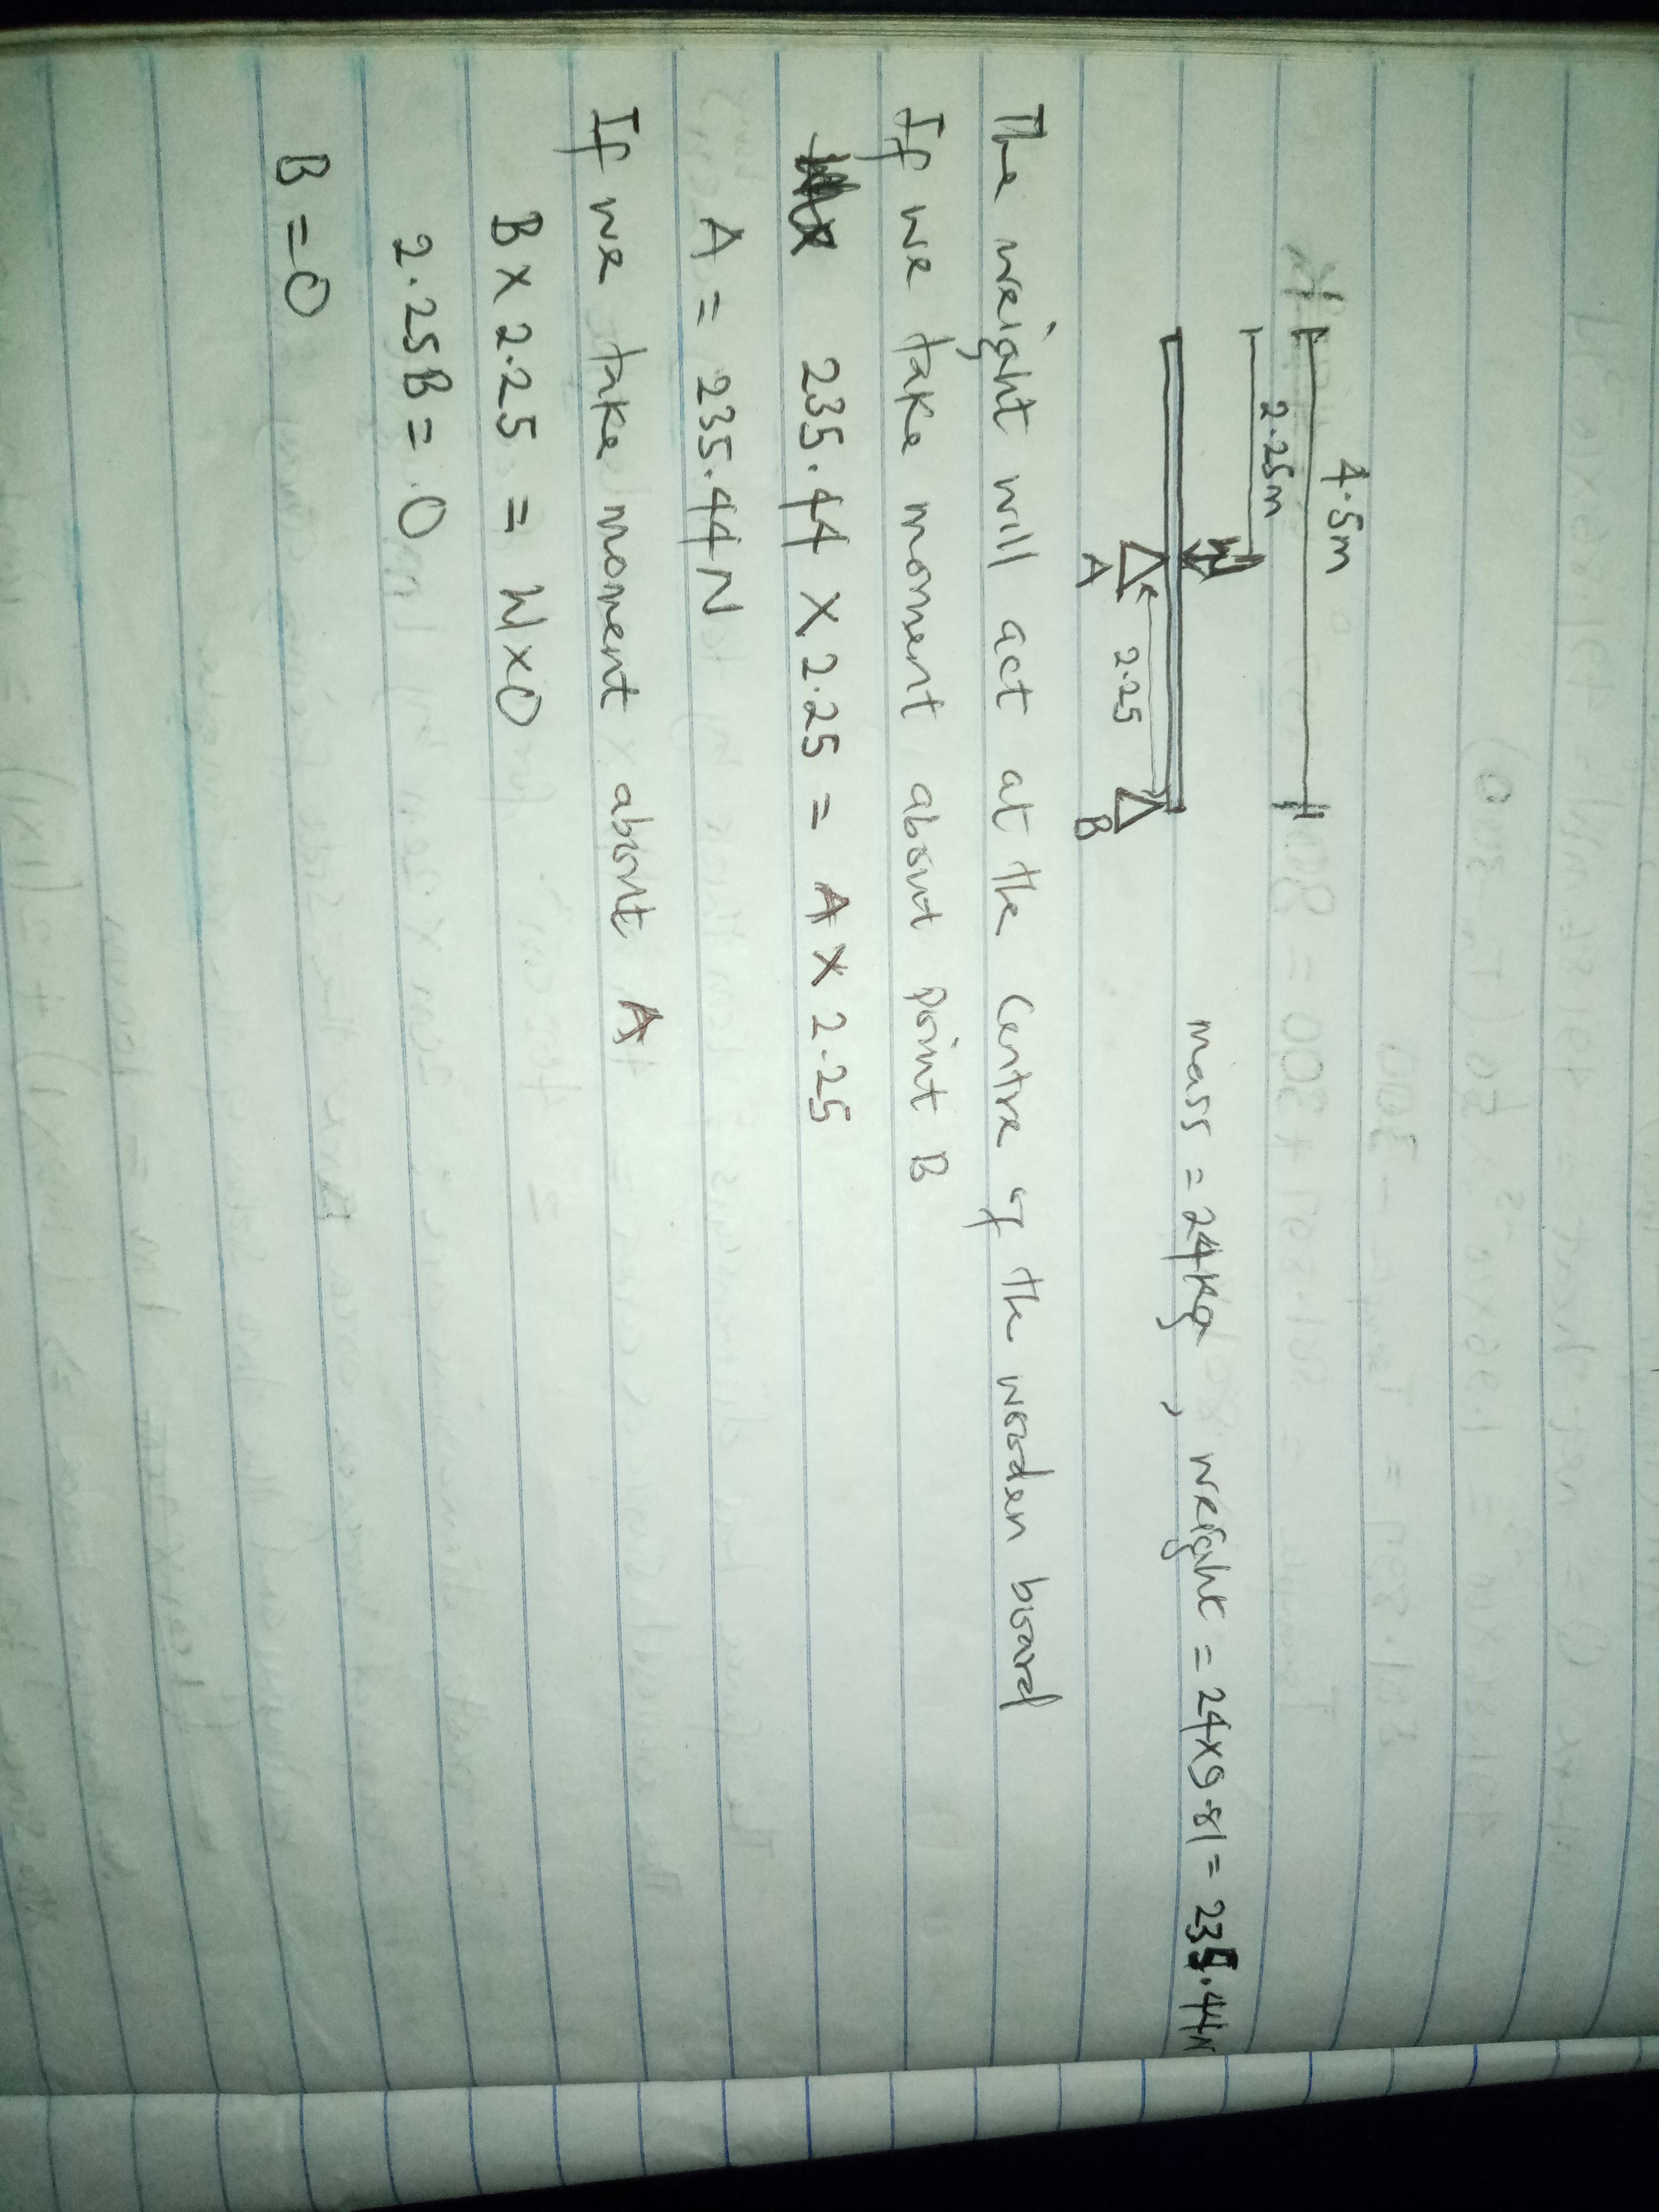 4.5m
2.25m
W
mass = 24kg , weight = 24x9.81 = 235.44N
2.25
A
B
The weight will act at the Centre of the wooden board
If we take moment about point B
235.44 x 2.25 = A x 2.25
A = 235.44N
If we take moment about A
B x 2.25 = W x 0
2.25B = 0
B = 0